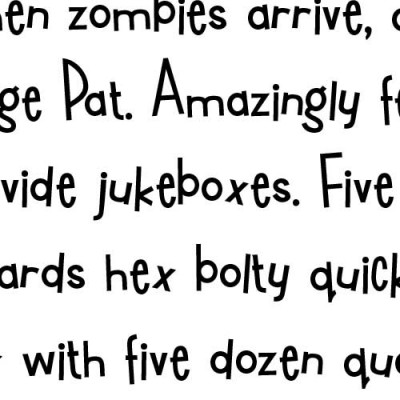 en zombies arrive,
ge Pat. Amazingly fe
vide jukeboxes. Five
ards hex bolty quick
with five dozen qu